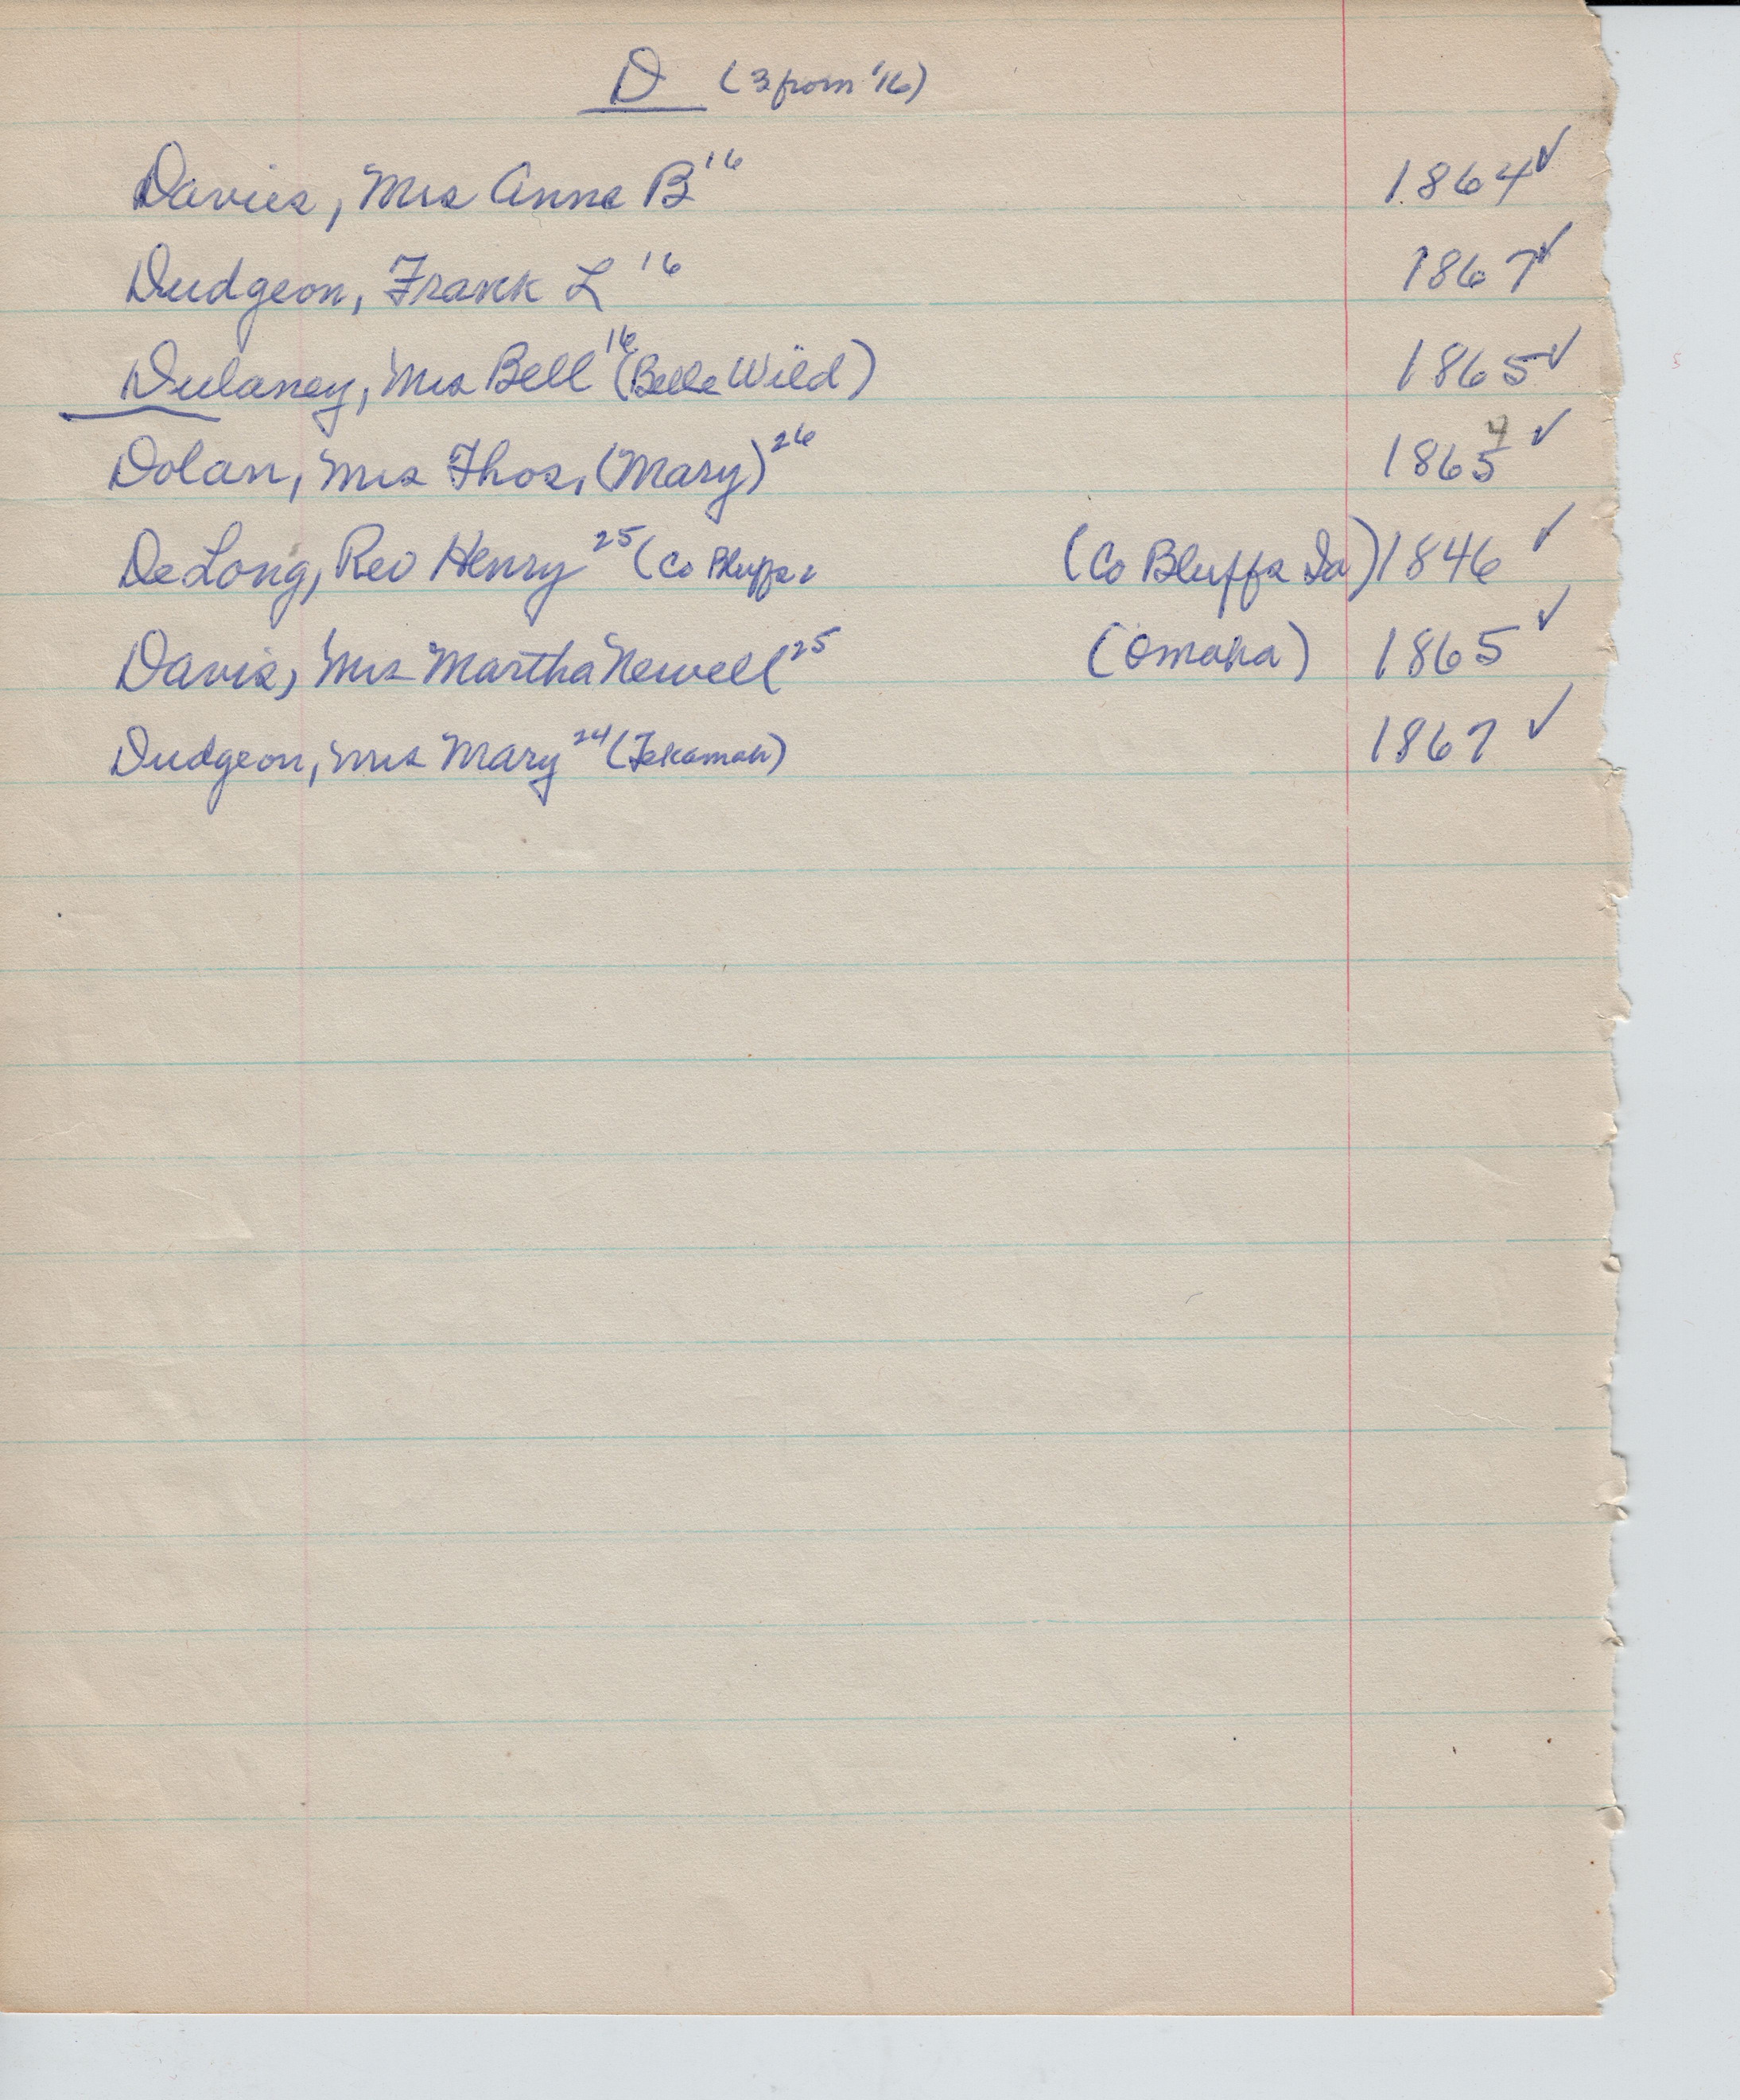 D (3 from '16)
Davies, Mrs Anna B '16 1864 ✓
Dudgeon, Frank L '16 1867 ✓
Dulaney, Mrs Bell '16 (Belle Wild) 1865 ✓
Dolan, Mrs Thos, (Mary) 26 1865 4 ✓
DeLong, Rev Henry 25 (Co Bluffs, (Co Bluffs Ia) 1846 ✓
Davis, Mrs Martha Newell 25 (Omaha) 1865 ✓
Dudgeon, Mrs Mary 24 (Tekamah) 1867 ✓